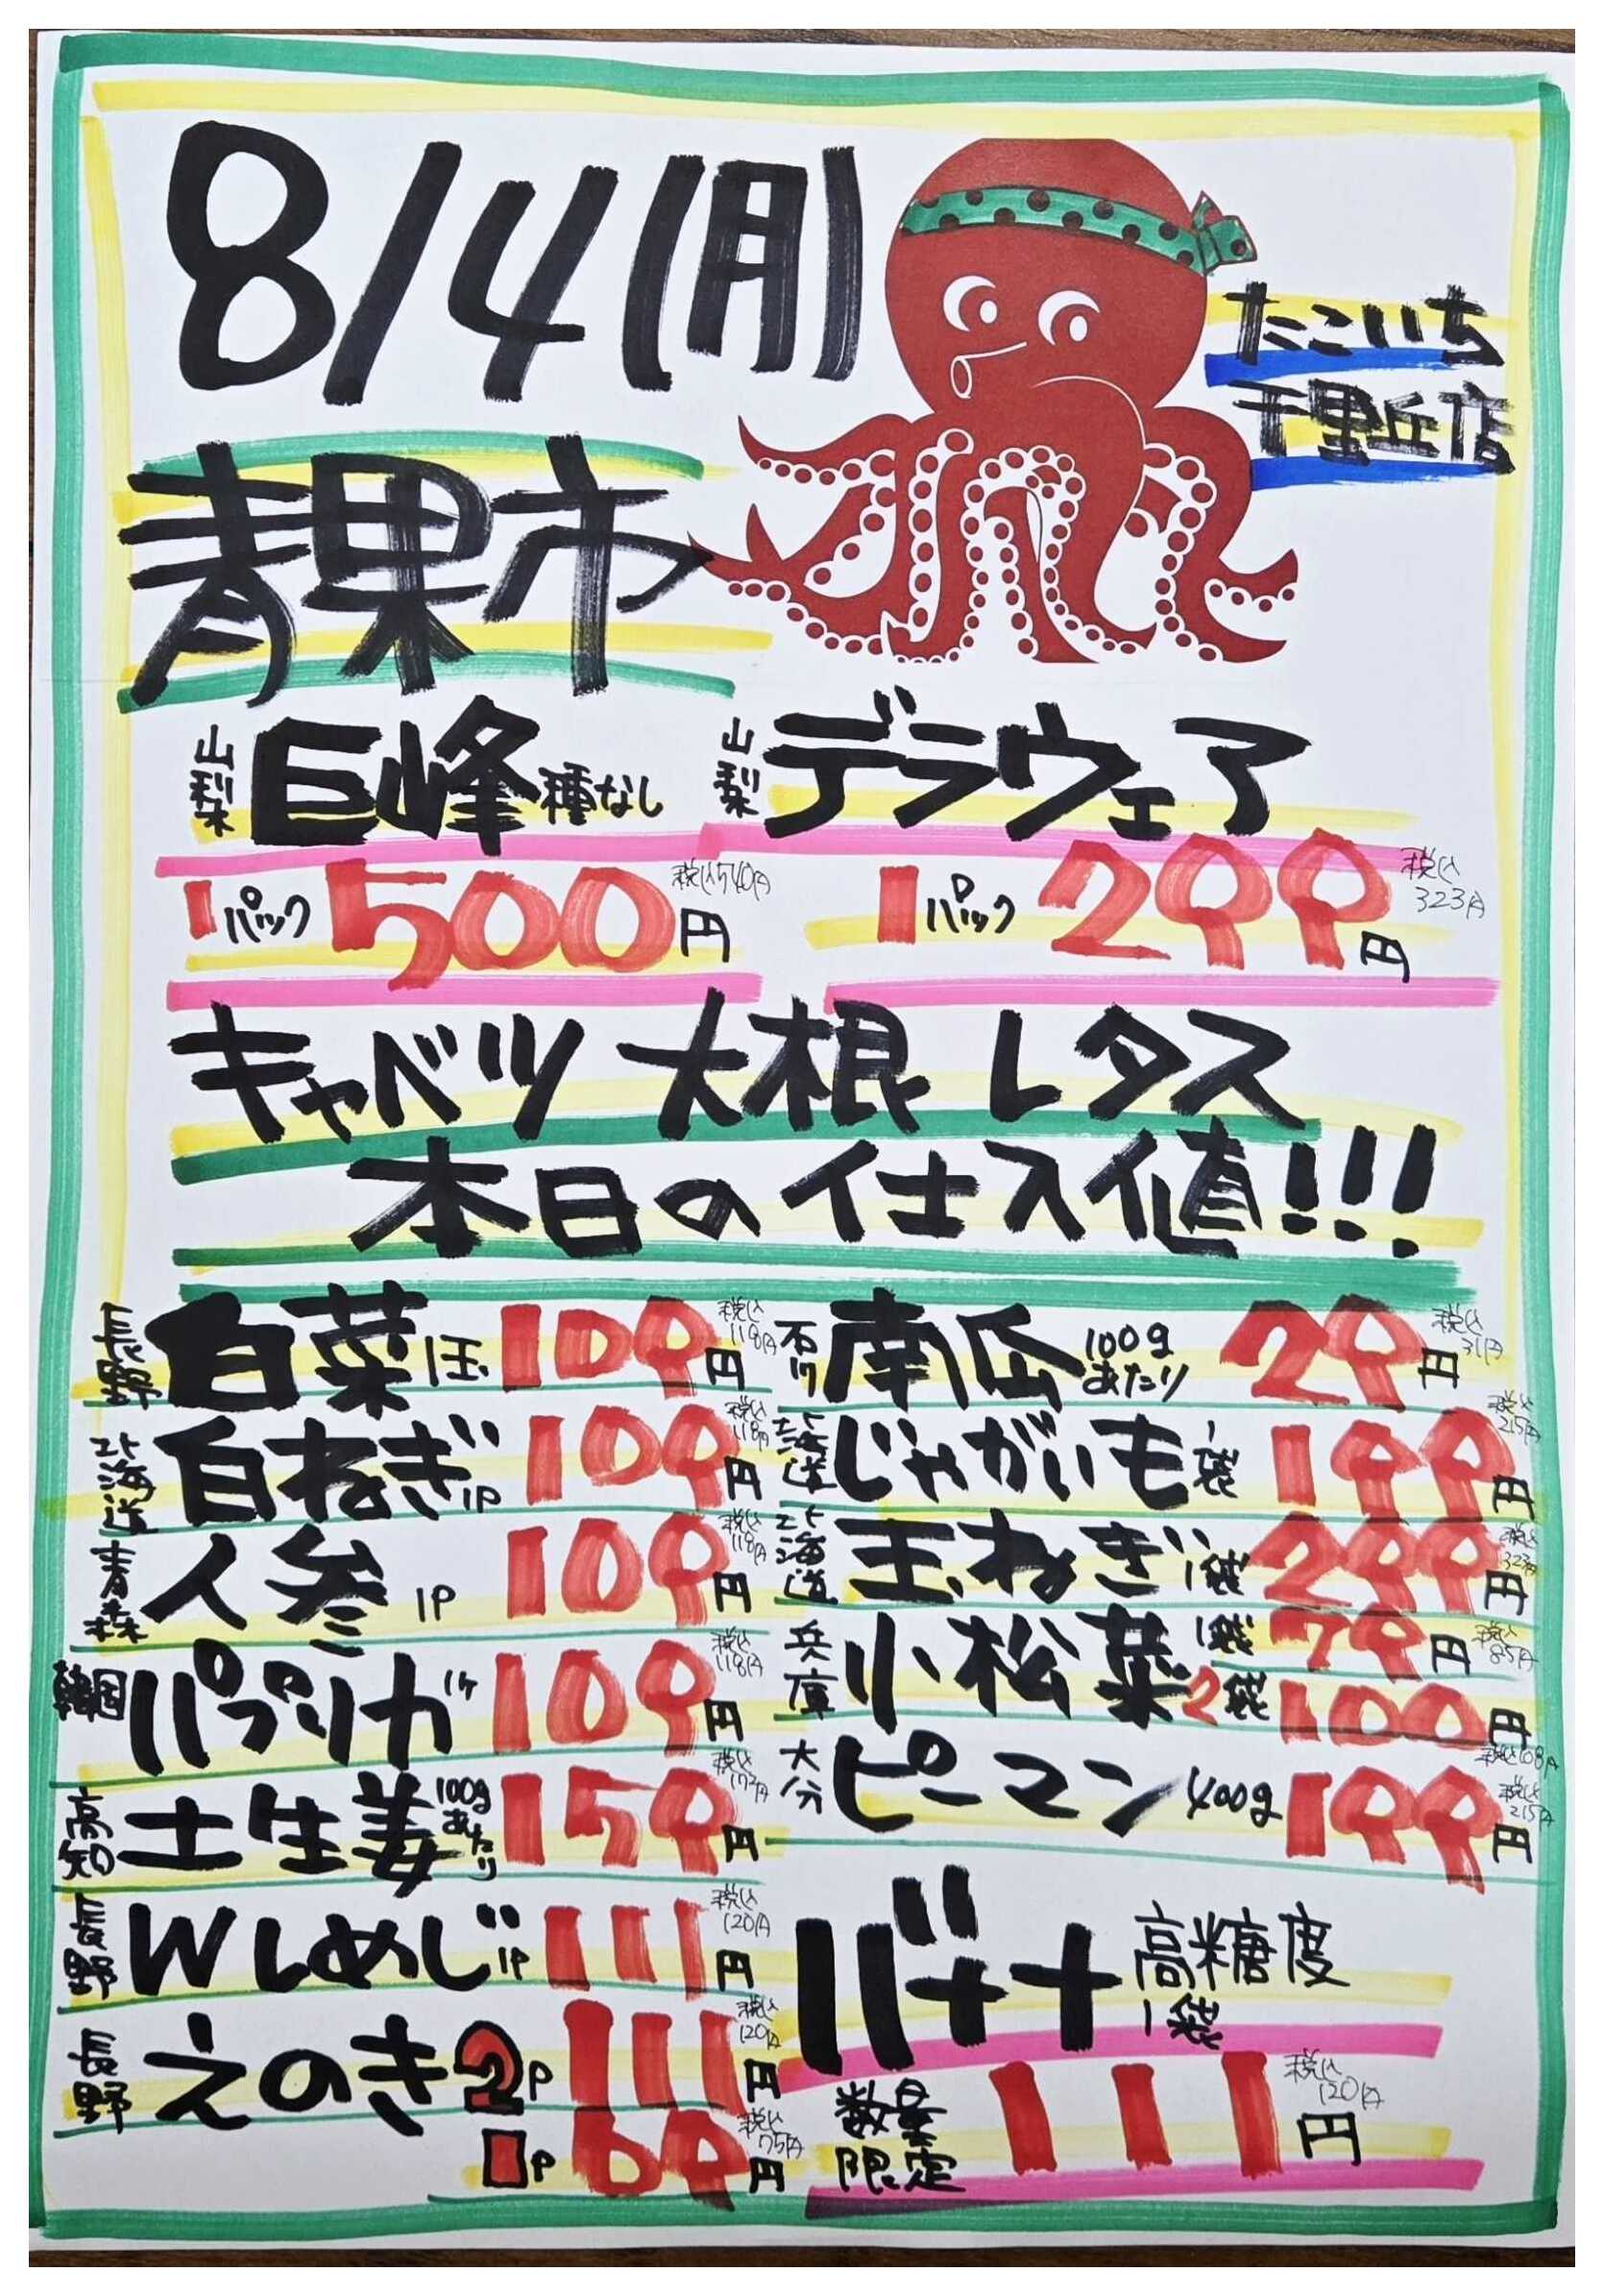 8/4(月)
たこいち
千里丘店
青果市
山梨 巨峰 種なし
1パック 500円 税込540円
山梨 デラウェア
1パック 299円 税込323円
キャベツ 大根 レタス
本日の仕入値!!!
長野 白菜 1玉 109円 税込118円
北海道 白ねぎ 1P 109円 税込118円
青森 人参 1P 109円 税込118円
韓国 パプリカ 1ヶ 109円 税込118円
高知 土生姜 100gあたり 159円 税込172円
長野 Wしめじ 1P 111円 税込120円
長野 えのき 2P 111円 税込120円
1P 69円 税込75円
石川 南瓜 100gあたり 29円 税込31円
北海道 じゃがいも 1袋 199円 税込215円
北海道 玉ねぎ 1袋 299円 税込323円
兵庫 小松菜 1袋 79円 税込85円
2袋 100円 税込108円
大分 ピーマン 400g 199円 税込215円
バナナ 高糖度
1袋
数量限定 111円 税込120円